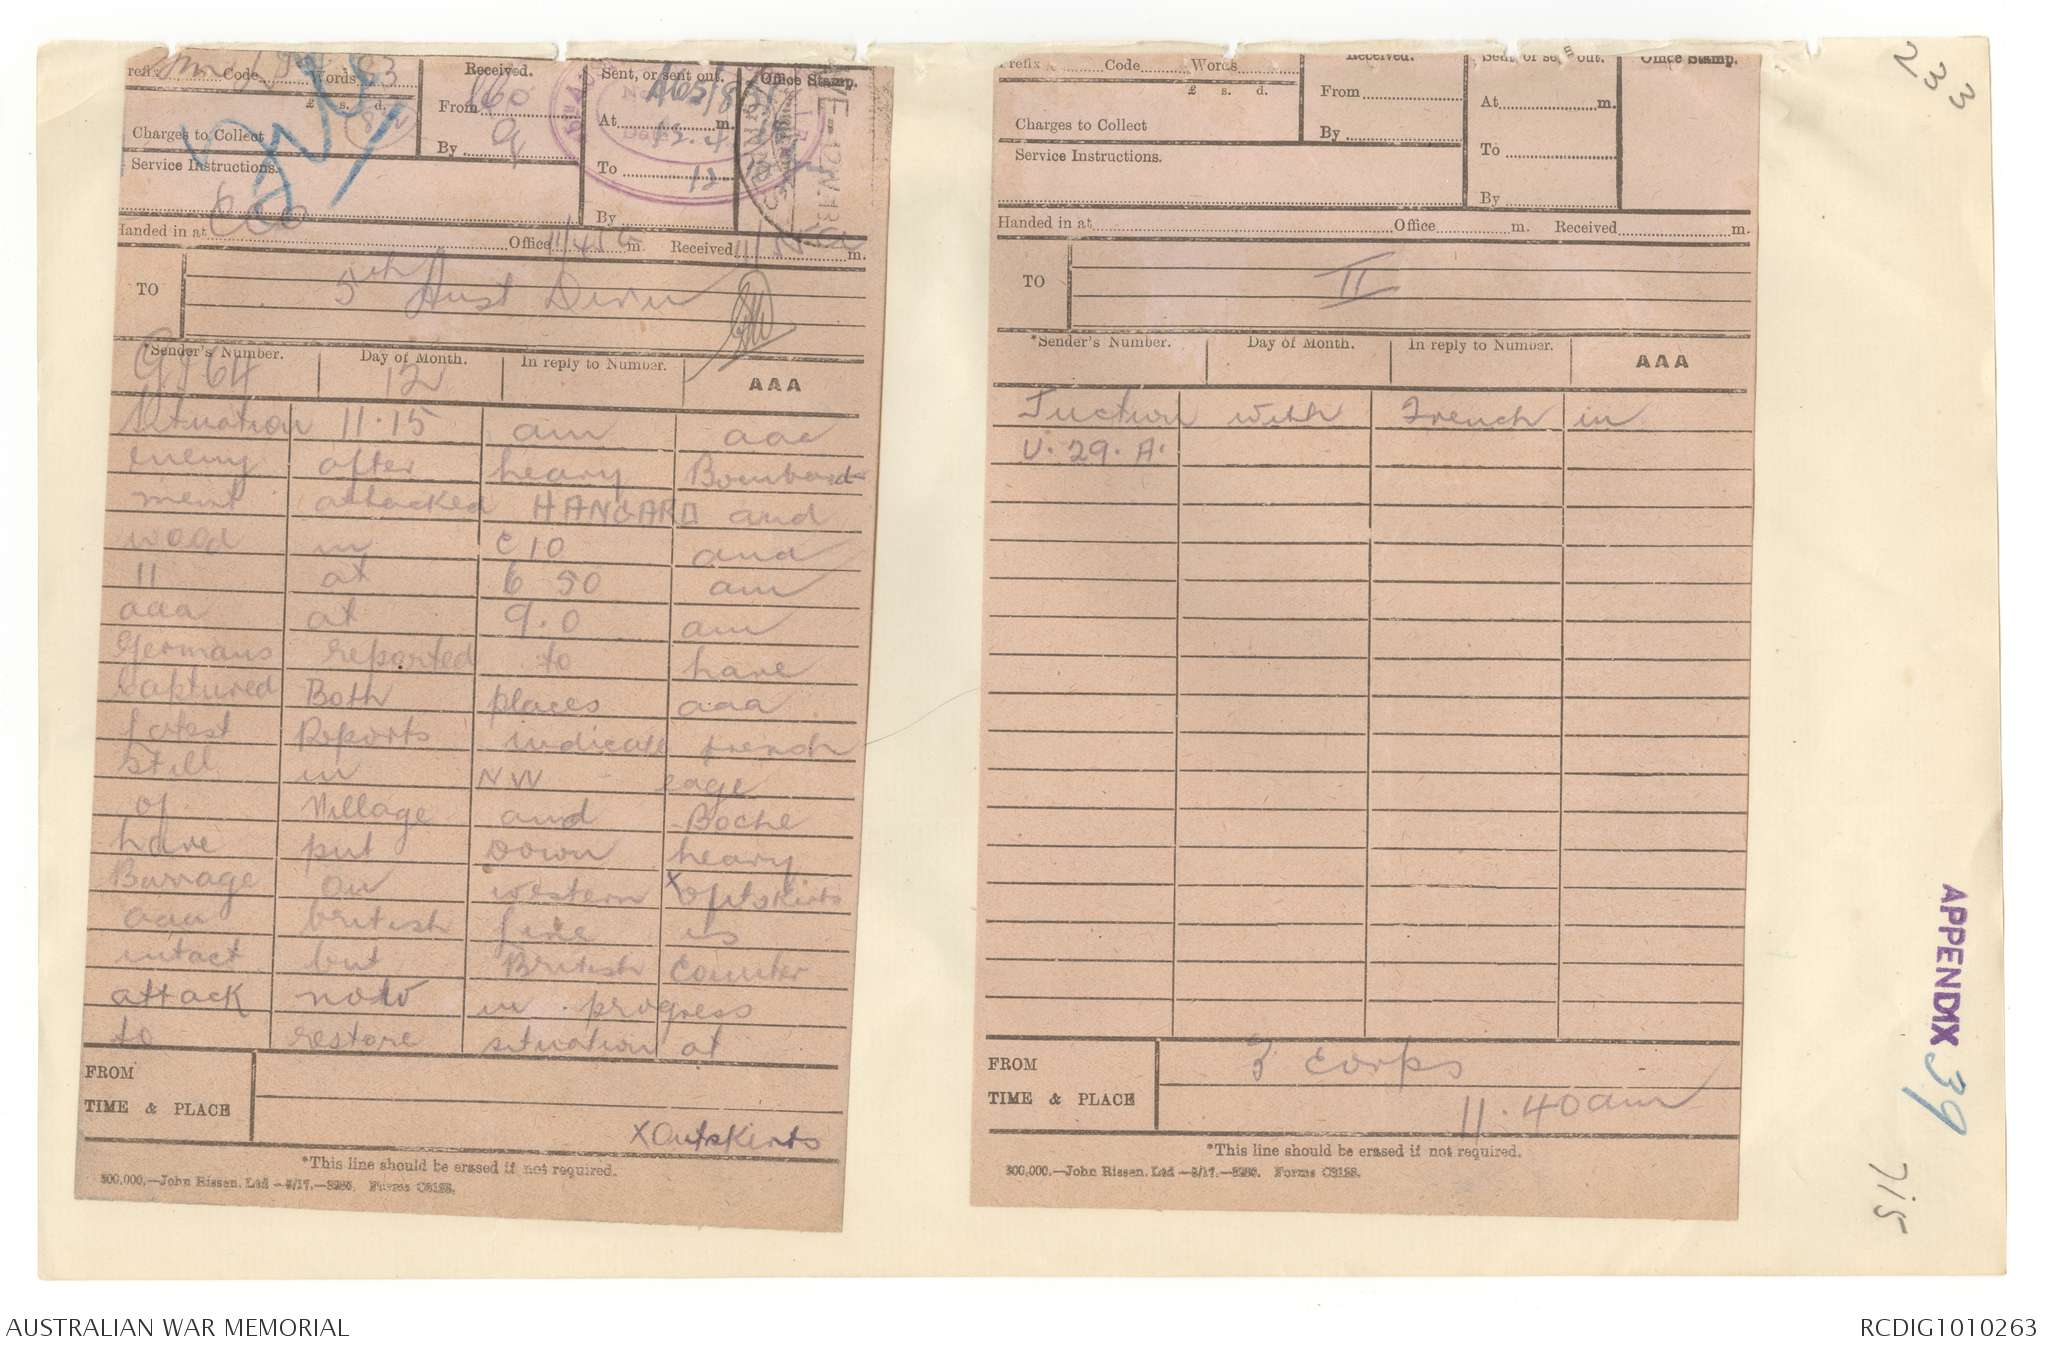 Prefix Code Words 83
£ s. d.
Charges to Collect
Service Instructions.
Received.
From
By
Sent, or sent out.
At m.
To
By
Office Stamp.
Handed in at Office m. Received m.
TO 5th Aust Divn
*Sender's Number. Day of Month. In reply to Number. AAA
G764 12
Situation 11.15 am aaa
enemy after heavy Bombard
ment attacked HANGARD and
wood in C10 and
11 at 6 50 am
aaa at 9.0 am
Germans reported to have
captured Both places aaa
latest Reports indicate french
still in NW edge
of Village and Boche
have put Down heavy
Barrage on western X outskirts
aaa british line is
intact but British Counter
attack now in progress
to restore situation at
FROM
TIME & PLACE
X Outskirts
*This line should be erased if not required.
300,000.—John Rissen, Ltd
Prefix Code Words
£ s. d.
Charges to Collect
Service Instructions.
Received.
From
By
Sent, or sent out.
At m.
To
By
Office Stamp.
Handed in at Office m. Received m.
TO II
*Sender's Number. Day of Month. In reply to Number. AAA
Juction with French in
U. 29. A.
FROM 3 Corps
TIME & PLACE 11.40am
*This line should be erased if not required.
300,000.—John Rissen, Ltd
233
APPENDIX 39
715
AUSTRALIAN WAR MEMORIAL
RCDIG1010263